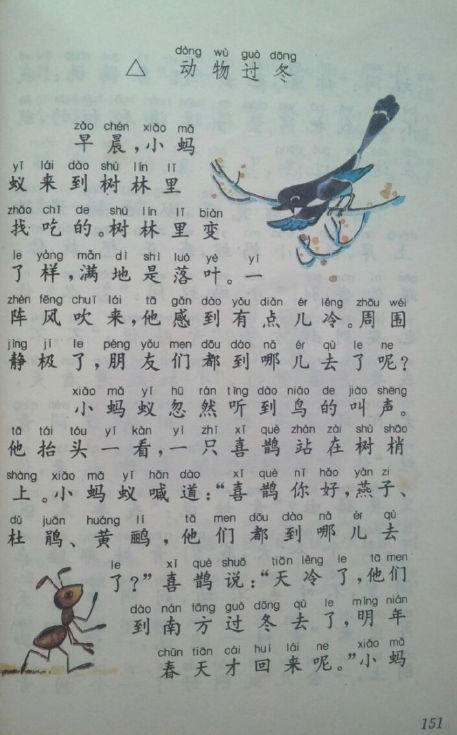 dòng wù guò dōng
△ 动物过冬
zǎo chén xiǎo mǎ
早晨，小蚂
yǐ lái dào shù lín lǐ
蚁来到树林里
zhǎo chī de shù lín lǐ biàn
找吃的。树林里变
le yàng mǎn dì shì luò yè yī
了样，满地是落叶。一
zhèn fēng chuī lái tā gǎn dào yǒu diǎn ér lěng zhōu wéi
阵风吹来，他感到有点儿冷。周围
jìng jí le péng yǒu men dōu dào nǎ ér qù le ne
静极了，朋友们都到哪儿去了呢？
xiǎo mǎ yǐ hū rán tīng dào niǎo de jiào shēng
小蚂蚁忽然听到鸟的叫声。
tā tái tóu yī kàn yī zhī xǐ què zhàn zài shù shāo
他抬头一看，一只喜鹊站在树梢
shàng xiǎo mǎ yǐ hǎn dào xǐ què nǐ hǎo yàn zi
上。小蚂蚁喊道：“喜鹊你好，燕子、
dù juān huáng lí tā men dōu dào nǎ ér qù
杜鹃、黄鹂，他们都到哪儿去
le xǐ què shuō tiān lěng le tā men
了？”喜鹊说：“天冷了，他们
dào nán fāng guò dōng qù le míng nián
到南方过冬去了，明年
chūn tiān cái huí lái ne xiǎo mǎ
春天才回来呢。”小蚂
151